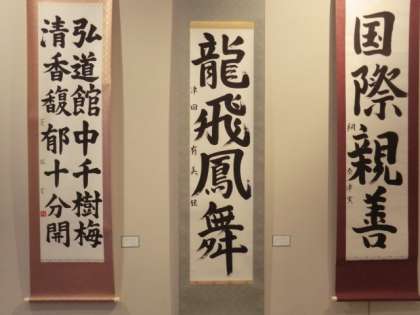 国際親善
龍飛鳳舞
弘道館中千樹梅
清香馥郁十分開